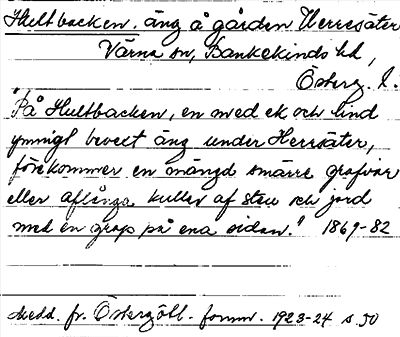 Hultbacken. äng å gården Herresäter
Värna sn, Bankekinds hd,
Österg. l.
"På Hultbacken, en med ek och lind
ymnigt bevext äng under Herrsäter,
förekommer en mängd smärre grafvar
eller aflånga kullar af sten och jord
med en grop på ena sidan." 1869-82
Medd. fr. Östergötl. fornm. 1923-24 s. 50